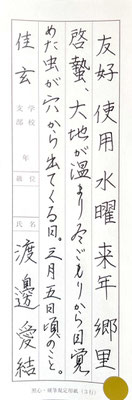 友好 使用 水曜 来年 郷里
啓蟄、大地が温まり冬ごもりから目覚
めた虫が穴から出てくる日。三月五日頃のこと。
佳玄 学校 文部 年 級位 氏名 渡邊愛結
硬筆規定用紙（3行）